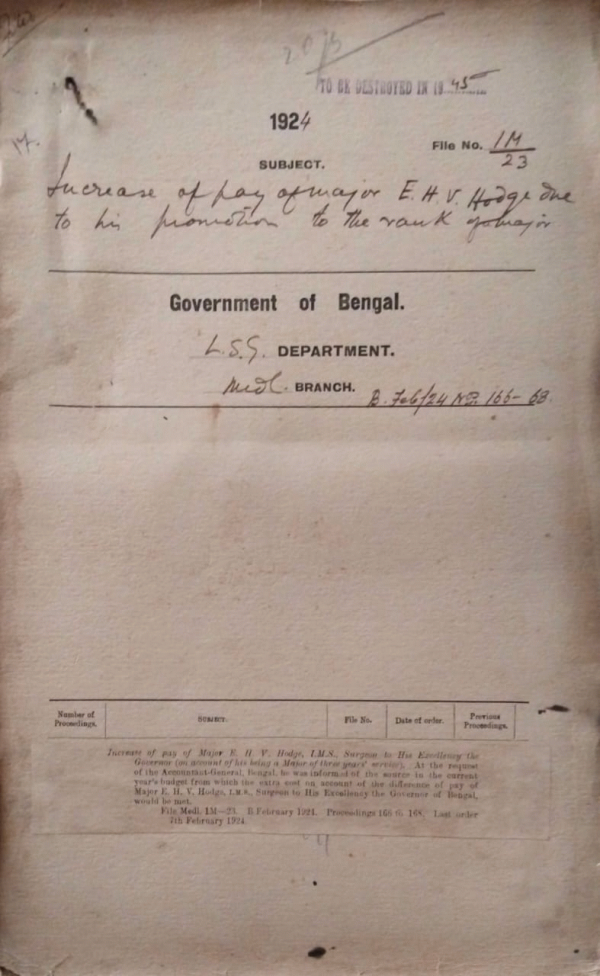 TO BE DESTROYED IN 1945
1924
File No. 1M/23
SUBJECT.
Increase of pay of major E. H. V. Hodge due
to his promotion to the rank of major
Government of Bengal.
L.S.G. DEPARTMENT.
Medl. BRANCH.
B. Feb/24 No. 166-68.
Number of Proceedings. SUBJECT. File No. Date of order. Previous Proceedings.
Increase of pay of Major E. H. V. Hodge, I.M.S., Surgeon to His Excellency the
Governor (on account of his being a Major of three years' service). At the request
of the Accountant-General, Bengal, he was informed of the source in the current
year's budget from which the extra cost on account of the difference of pay of
Major E. H. V. Hodge, I.M.S., Surgeon to His Excellency the Governor of Bengal,
would be met.
File Medl. 1M—23. B February 1924. Proceedings 166 to 168. Last order
7th February 1924.